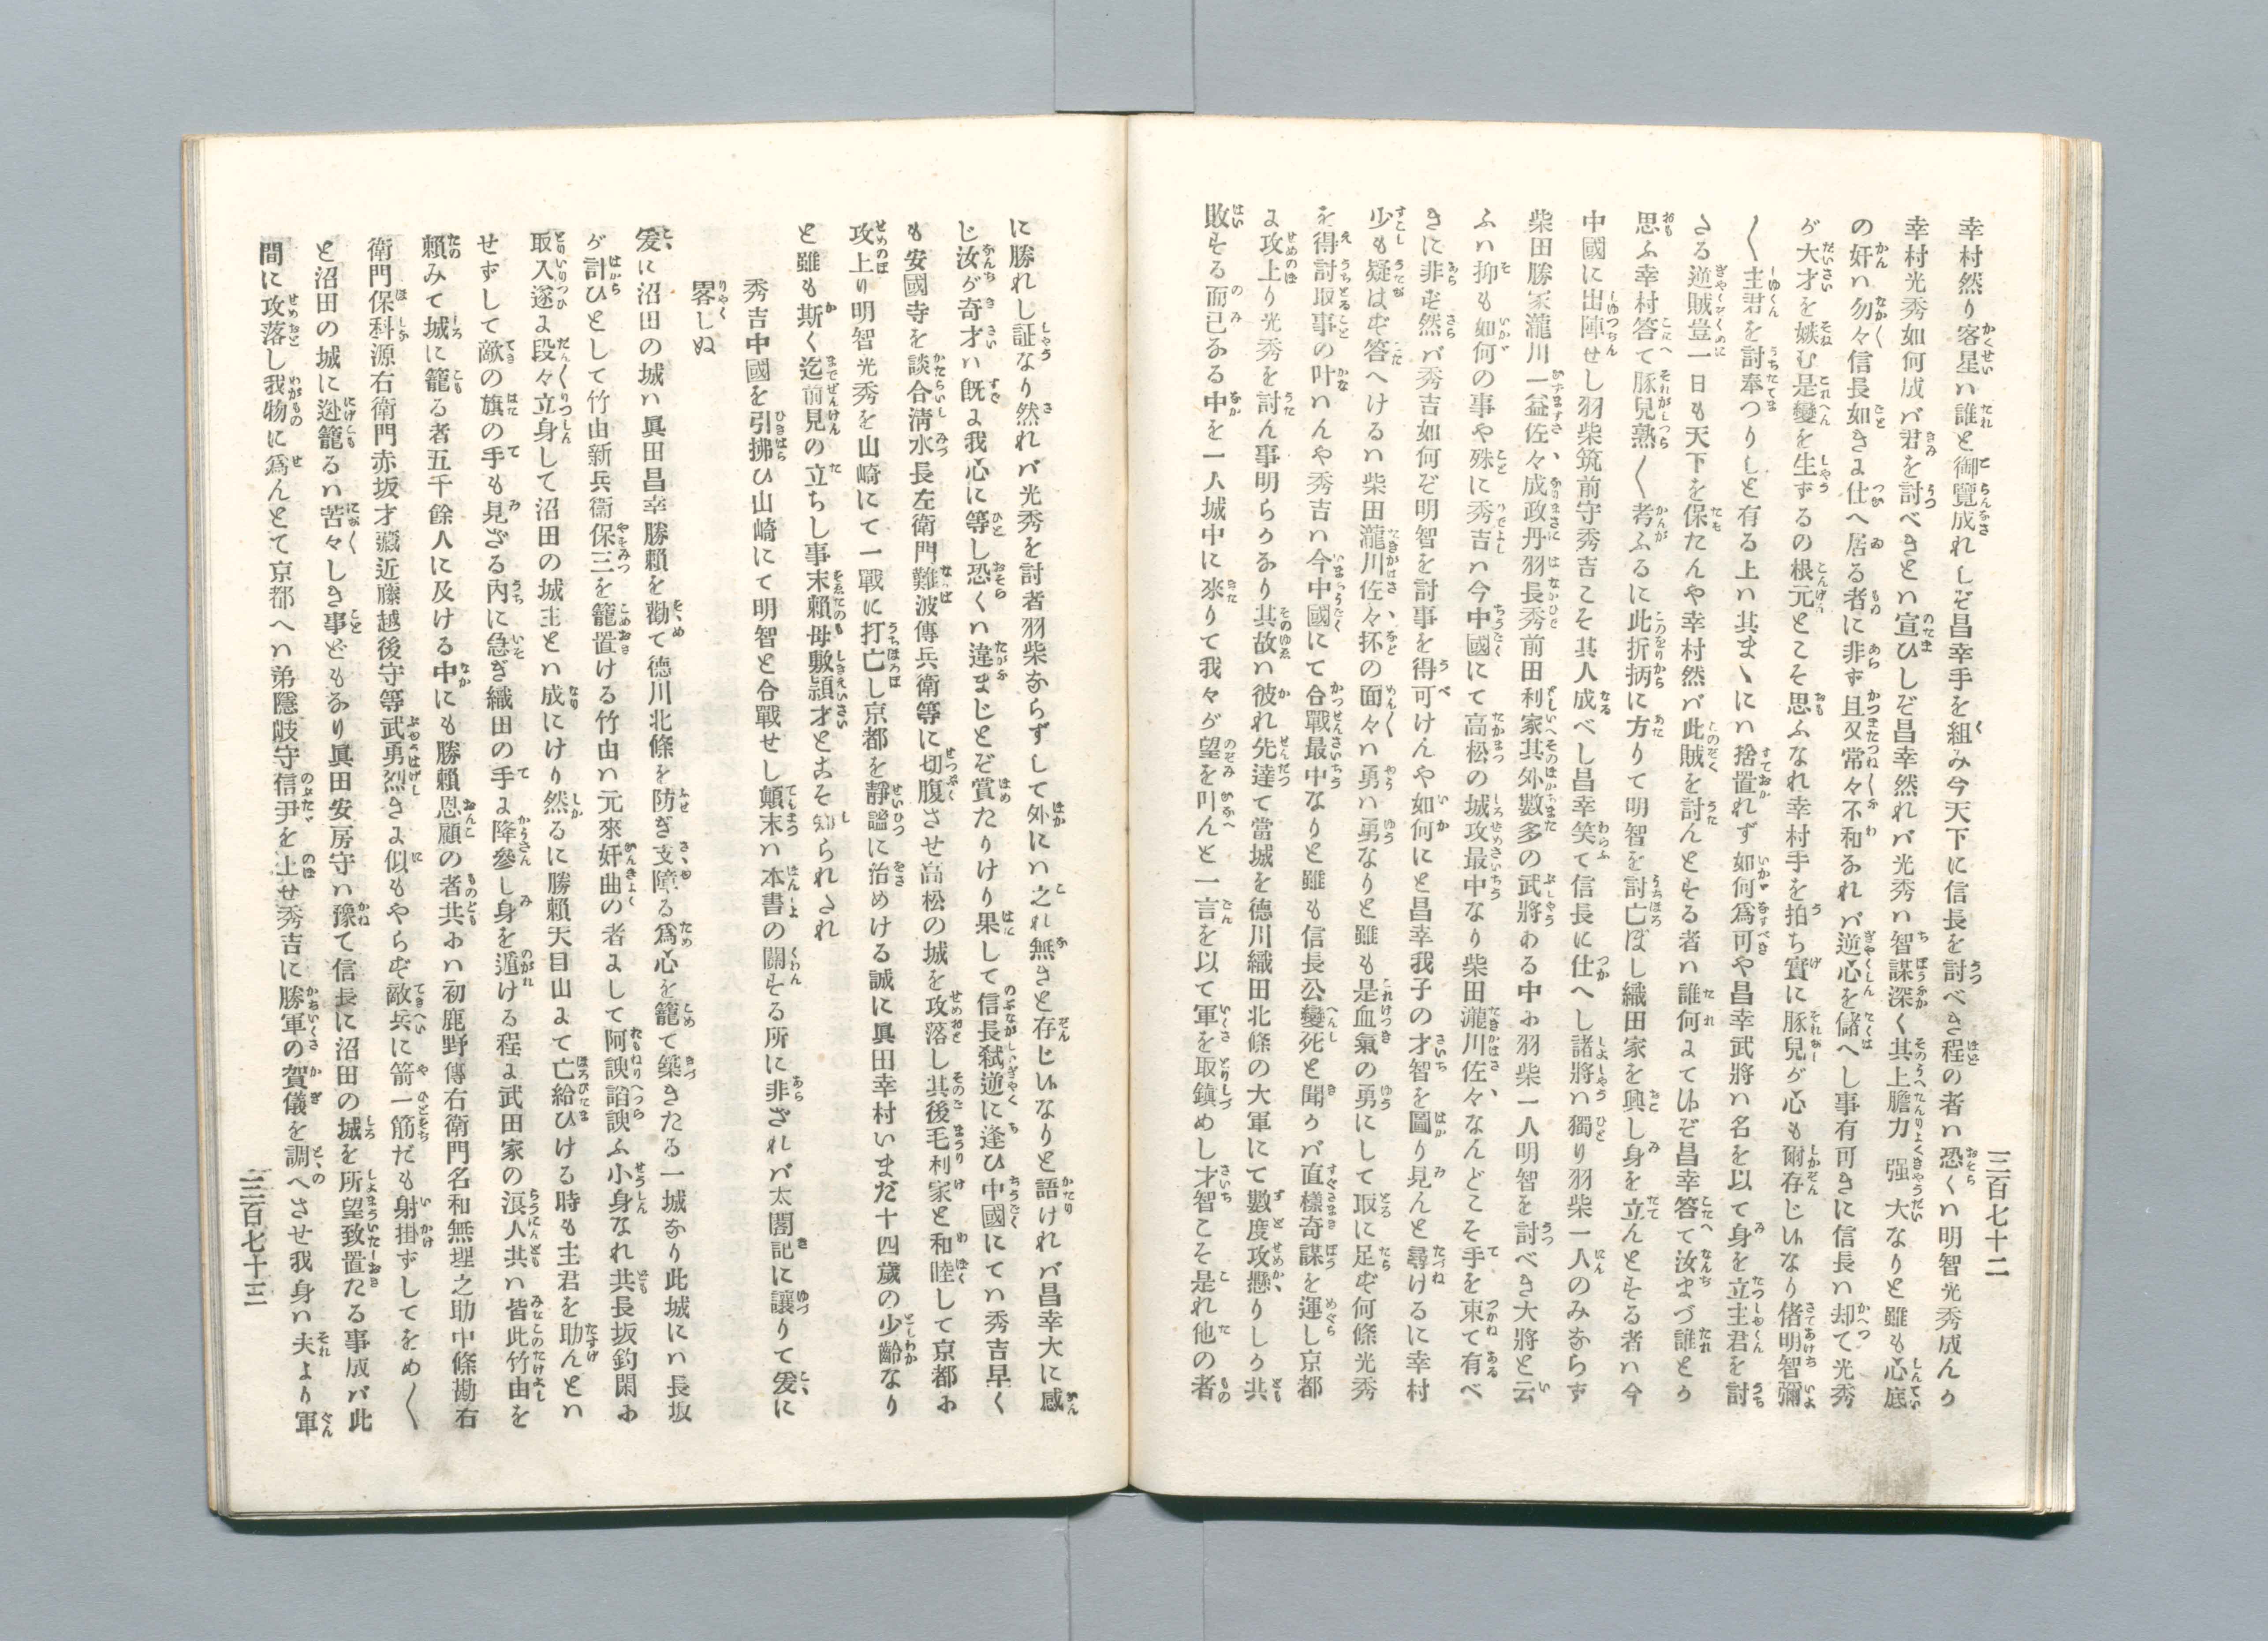 幸村然り客星ハ誰と御覽成れしぞ昌幸手を組み今天下に信長を討べき程の者ハ恐くハ明智光秀成んか
幸村光秀如何成バ君を討べきとハ宣ひしぞ昌幸然れバ光秀ハ智謀深く其上膽力强大なりと雖も心底
の奸ハ勿々信長如きよ仕へ居る者に非ず且又常々不和あれバ逆心を儲へし事有可きに信長ハ却て光秀
が大才を嫉む是變を生ずるの根元とこそ思ふなれ幸村手を拍ち實に豚兒が心も爾存じ𛂞なり偖明智彌
〱主君を討奉つりしと有る上ハ其まゝにハ捨置れず如何爲可や昌幸武將ハ名を以て身を立主君を討
さる逆賊豈一日も天下を保たんや幸村然バ此賊を討んとする者ハ誰何よてかぞ昌幸答て汝まづ誰とか
思ふ幸村答て豚兒熟〱考ふるに此折柄に方りて明智を討亡ぼし織田家を興し身を立んとする者ハ今
中國に出陣せし羽柴筑前守秀吉こそ其人成べし昌幸笑て信長に仕へし諸將ハ獨り羽柴一人のみならず
柴田勝家瀧川一益佐々成政丹羽長秀前田利家其外數多の武將ある中お羽柴一人明智を討べき大將と云
ふハ抑も如何の事や殊に秀吉ハ今中國にて高松の城攻最中なり柴田瀧川佐々なんどこそ手を束て有べ
きに非ず然バ秀吉如何ぞ明智を討事を得可けんや如何にと昌幸我子の才智を圖り見んと尋けるに幸村
少も疑はず答へけるハ柴田瀧川佐々抔の面々ハ勇ハ勇なりと雖も是血氣の勇にして取に足ず何條光秀
を得討取事の叶ハんや秀吉ハ今中國にて合戰最中なりと雖も信長公變死と聞かバ直樣奇謀を運し京都
よ攻上り光秀を討ん事明らかあり其故ハ彼れ先達て當城を德川織田北條の大軍にて數度攻懸りしか共
敗する而已ある中を一人城中に來りて我々が望を叶んと一言を以て軍を取鎭めし才智こそ是れ他の者
三百七十二
に勝れし証なり然れバ光秀を討者羽柴ならずして外にハ之れ無きと存じ𛂞なりと語けれバ昌幸大に感
じ汝が奇才ハ既よ我心に等し恐くハ違まじとぞ賞たりけり果して信長弑逆に逢ひ中國にてハ秀吉早く
も安國寺を談合淸水長左衛門難波傳兵衛等に切腹させ高松の城を攻落し其後毛利家と和睦して京都お
攻上り明智光秀を山崎にて一戰に打亡し京都を靜謐に治めける誠に眞田幸村いまだ十四歲の少齡なり
と雖も斯く迄前見の立ちし事末賴母敷頴才とこそ知られされ
秀吉中國を引拂ひ山崎にて明智と合戰せし顚末ハ本書の關する所に非ざれバ太閤記に讓りて爰に
畧しぬ
爰に沼田の城ハ眞田昌幸勝賴を勸て德川北條を防ぎ支障る爲心を籠て築きたる一城なり此城にハ長坂
が計ひとして竹由新兵衞保三を籠置ける竹由ハ元來奸曲の者よして阿諛諂諛ふ小身なれ共長坂釣閑お
取入遂よ段々立身して沼田の城主とハ成にけり然るに勝賴天目山よて亡給ひける時も主君を助んとハ
せずして敵の旗の手も見ざる內に急ぎ織田の手よ降參し身を遁ける程よ武田家の浪人共ハ皆此竹由を
賴みて城に籠る者五千餘人に及ける中にも勝賴恩顧の者共おハ初鹿野傳右衛門名和無理之助中條勘右
衛門保科源右衛門赤坂才藏近藤越後守等武勇烈きよ似もやらず敵兵に箭一筋だも射掛ずしてをめ〱
と沼田の城に迯籠るハ苦々しき事どもあり眞田安房守ハ豫て信長に沼田の城を所望致置たる事成バ此
間に攻落し我物に爲んとて京都へハ弟隱岐守信尹を上せ秀吉に勝軍の賀儀を調へさせ我身ハ夫より軍
三百七十三